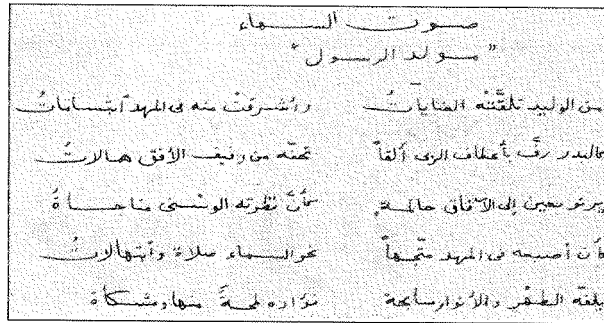 صوت السماء
"مولد الرسول"
من الوليد تلقَّتْه العنايات وأشرقتْ منه في المهد ابتسامات
كالبدر رفَّ بأعطاف الربى ألقاً تحفّه من رفيف الأفق هالاتُ
يرنو بعين إلى الآفاق حالمة كأنَّ نظرته الوسنى مناجاةُ
كأن أصبعه في المهد متّجهاً نحو السماء صلاة وابتهالاتُ
يلفّه الطهْر والأنوار سابحة فؤاده لمحةٌ منها ومشكاة